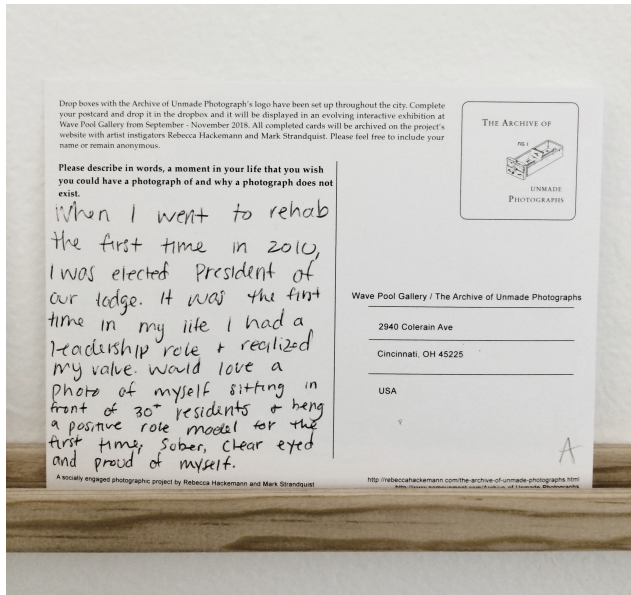 Drop boxes with the Archive of Unmade Photograph's logo have been set up throughout the city. Complete
your postcard and drop it in the dropbox and it will be displayed in an evolving interactive exhibition at
Wave Pool Gallery from September - November 2018. All completed cards will be archived on the project's
website with artist instigators Rebecca Hackemann and Mark Strandquist. Please feel free to include your
name or remain anonymous.
Please describe in words, a moment in your life that you wish
you could have a photograph of and why a photograph does not
exist.
When I went to rehab
the first time in 2010,
I was elected President of
our lodge. It was the first
time in my life I had a
leadership role + realized
my value. Would love a
photo of myself sitting in
front of 30+ residents + being
a positive role model for the
first time, Sober, clear eyed
and proud of myself.
A socially engaged photographic project by Rebecca Hackemann and Mark Strandquist
THE ARCHIVE OF
FIG 1
UNMADE
PHOTOGRAPHS
Wave Pool Gallery / The Archive of Unmade Photographs
2940 Colerain Ave
Cincinnati, OH 45225
USA
A
http://rebeccahackemann.com/the-archive-of-unmade-photographs.html